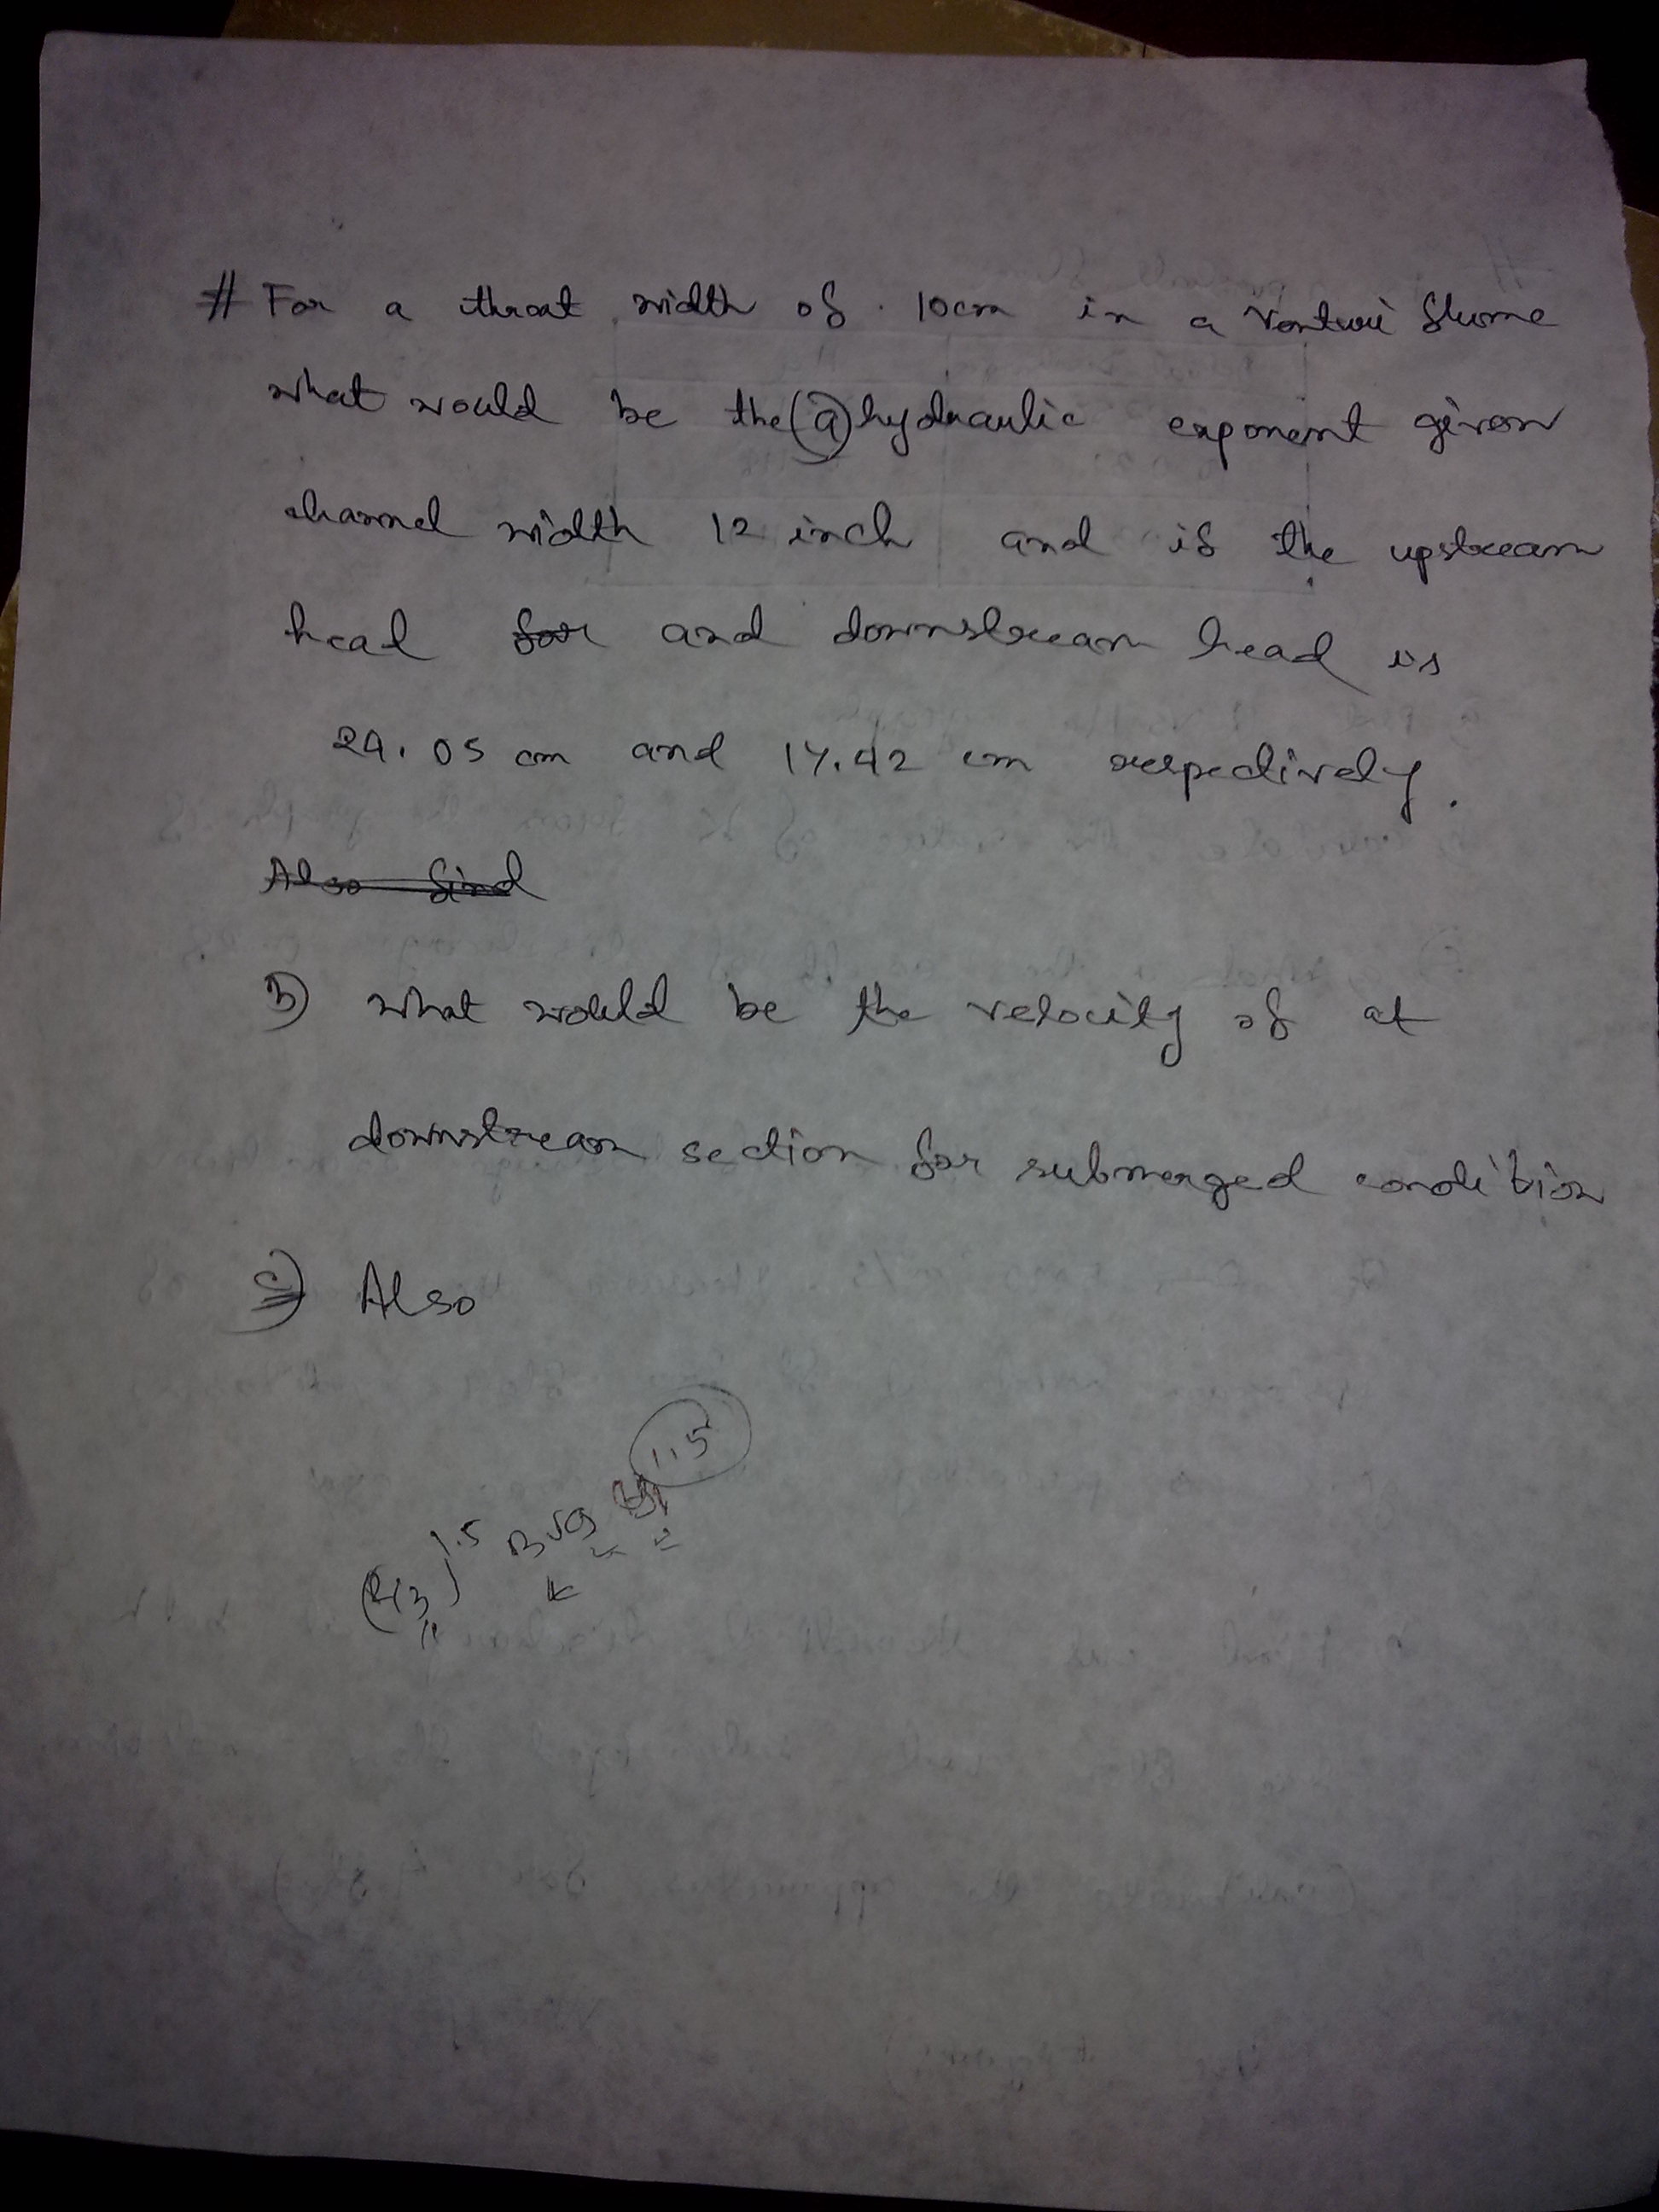 # For a throat width of 10cm in a venturi flume
what would be the (a) hydraulic exponent given
channel width 12 inch and if the upstream
head for and downstream head is
24.05 cm and 17.42 cm respectively.
Also find
b) what would be the velocity of at
downstream section for submerged condition
c) Also
1.5
(2/3)^1.5 B √g